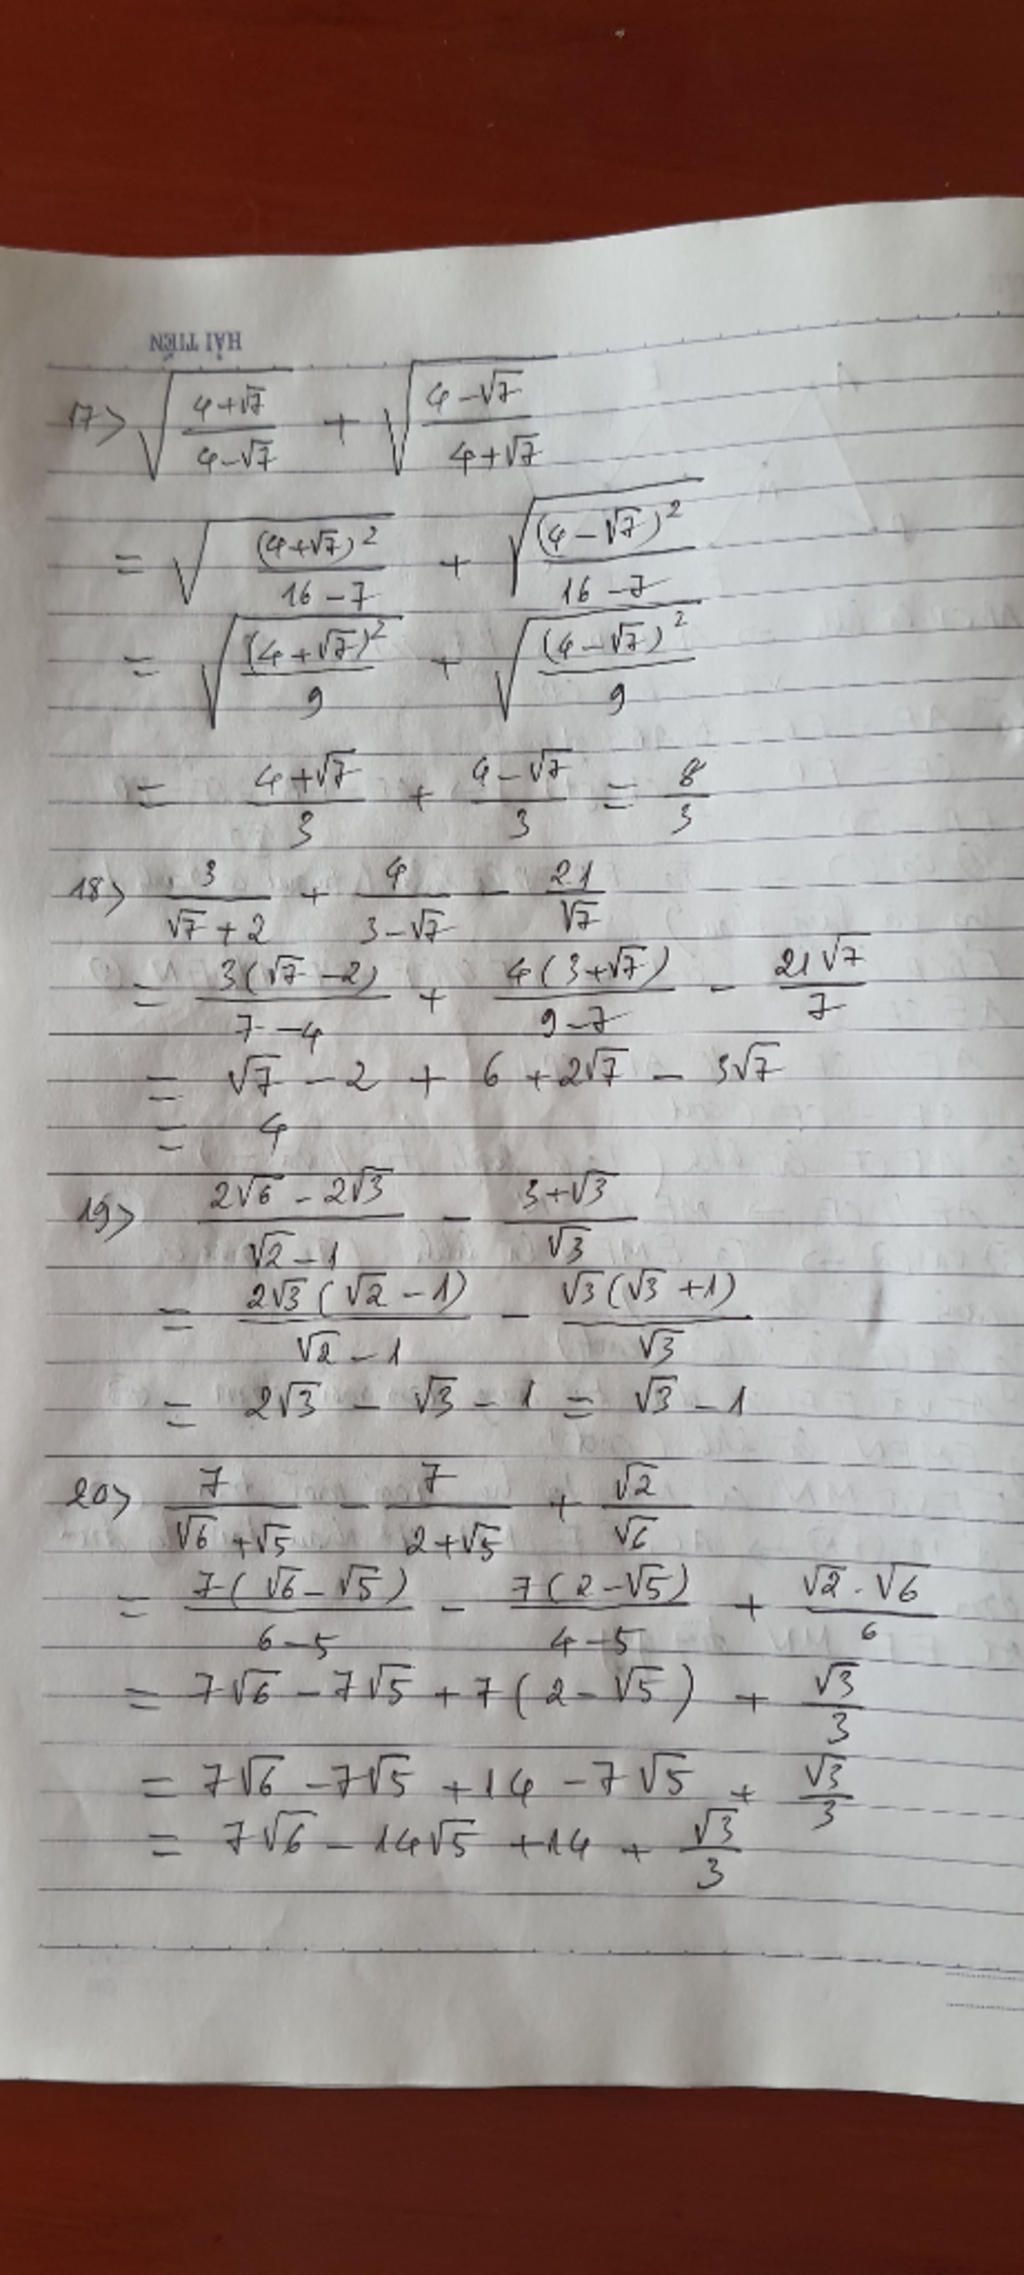 HẢI TIẾN
17> √((4+√7)/(4-√7)) + √((4-√7)/(4+√7))
= √((4+√7)²/(16-7)) + √((4-√7)²/(16-7))
= √((4+√7)²/9) + √((4-√7)²/9)
= (4+√7)/3 + (4-√7)/3 = 8/3
18> 3/(√7+2) + 4/(3-√7) - 21/√7
= 3(√7-2)/(7-4) + 4(3+√7)/(9-7) - 21√7/7
= √7 - 2 + 6 + 2√7 - 3√7
= 4
19> (2√6 - 2√3)/(√2-1) - (3+√3)/√3
= 2√3(√2-1)/(√2-1) - √3(√3+1)/√3
= 2√3 - √3 - 1 = √3 - 1
20> 7/(√6+√5) - 7/(2+√5) + √2/√6
= 7(√6-√5)/(6-5) - 7(2-√5)/(4-5) + √2.√6/6
= 7√6 - 7√5 + 7(2-√5) + √3/3
= 7√6 - 7√5 + 14 - 7√5 + √3/3
= 7√6 - 14√5 + 14 + √3/3